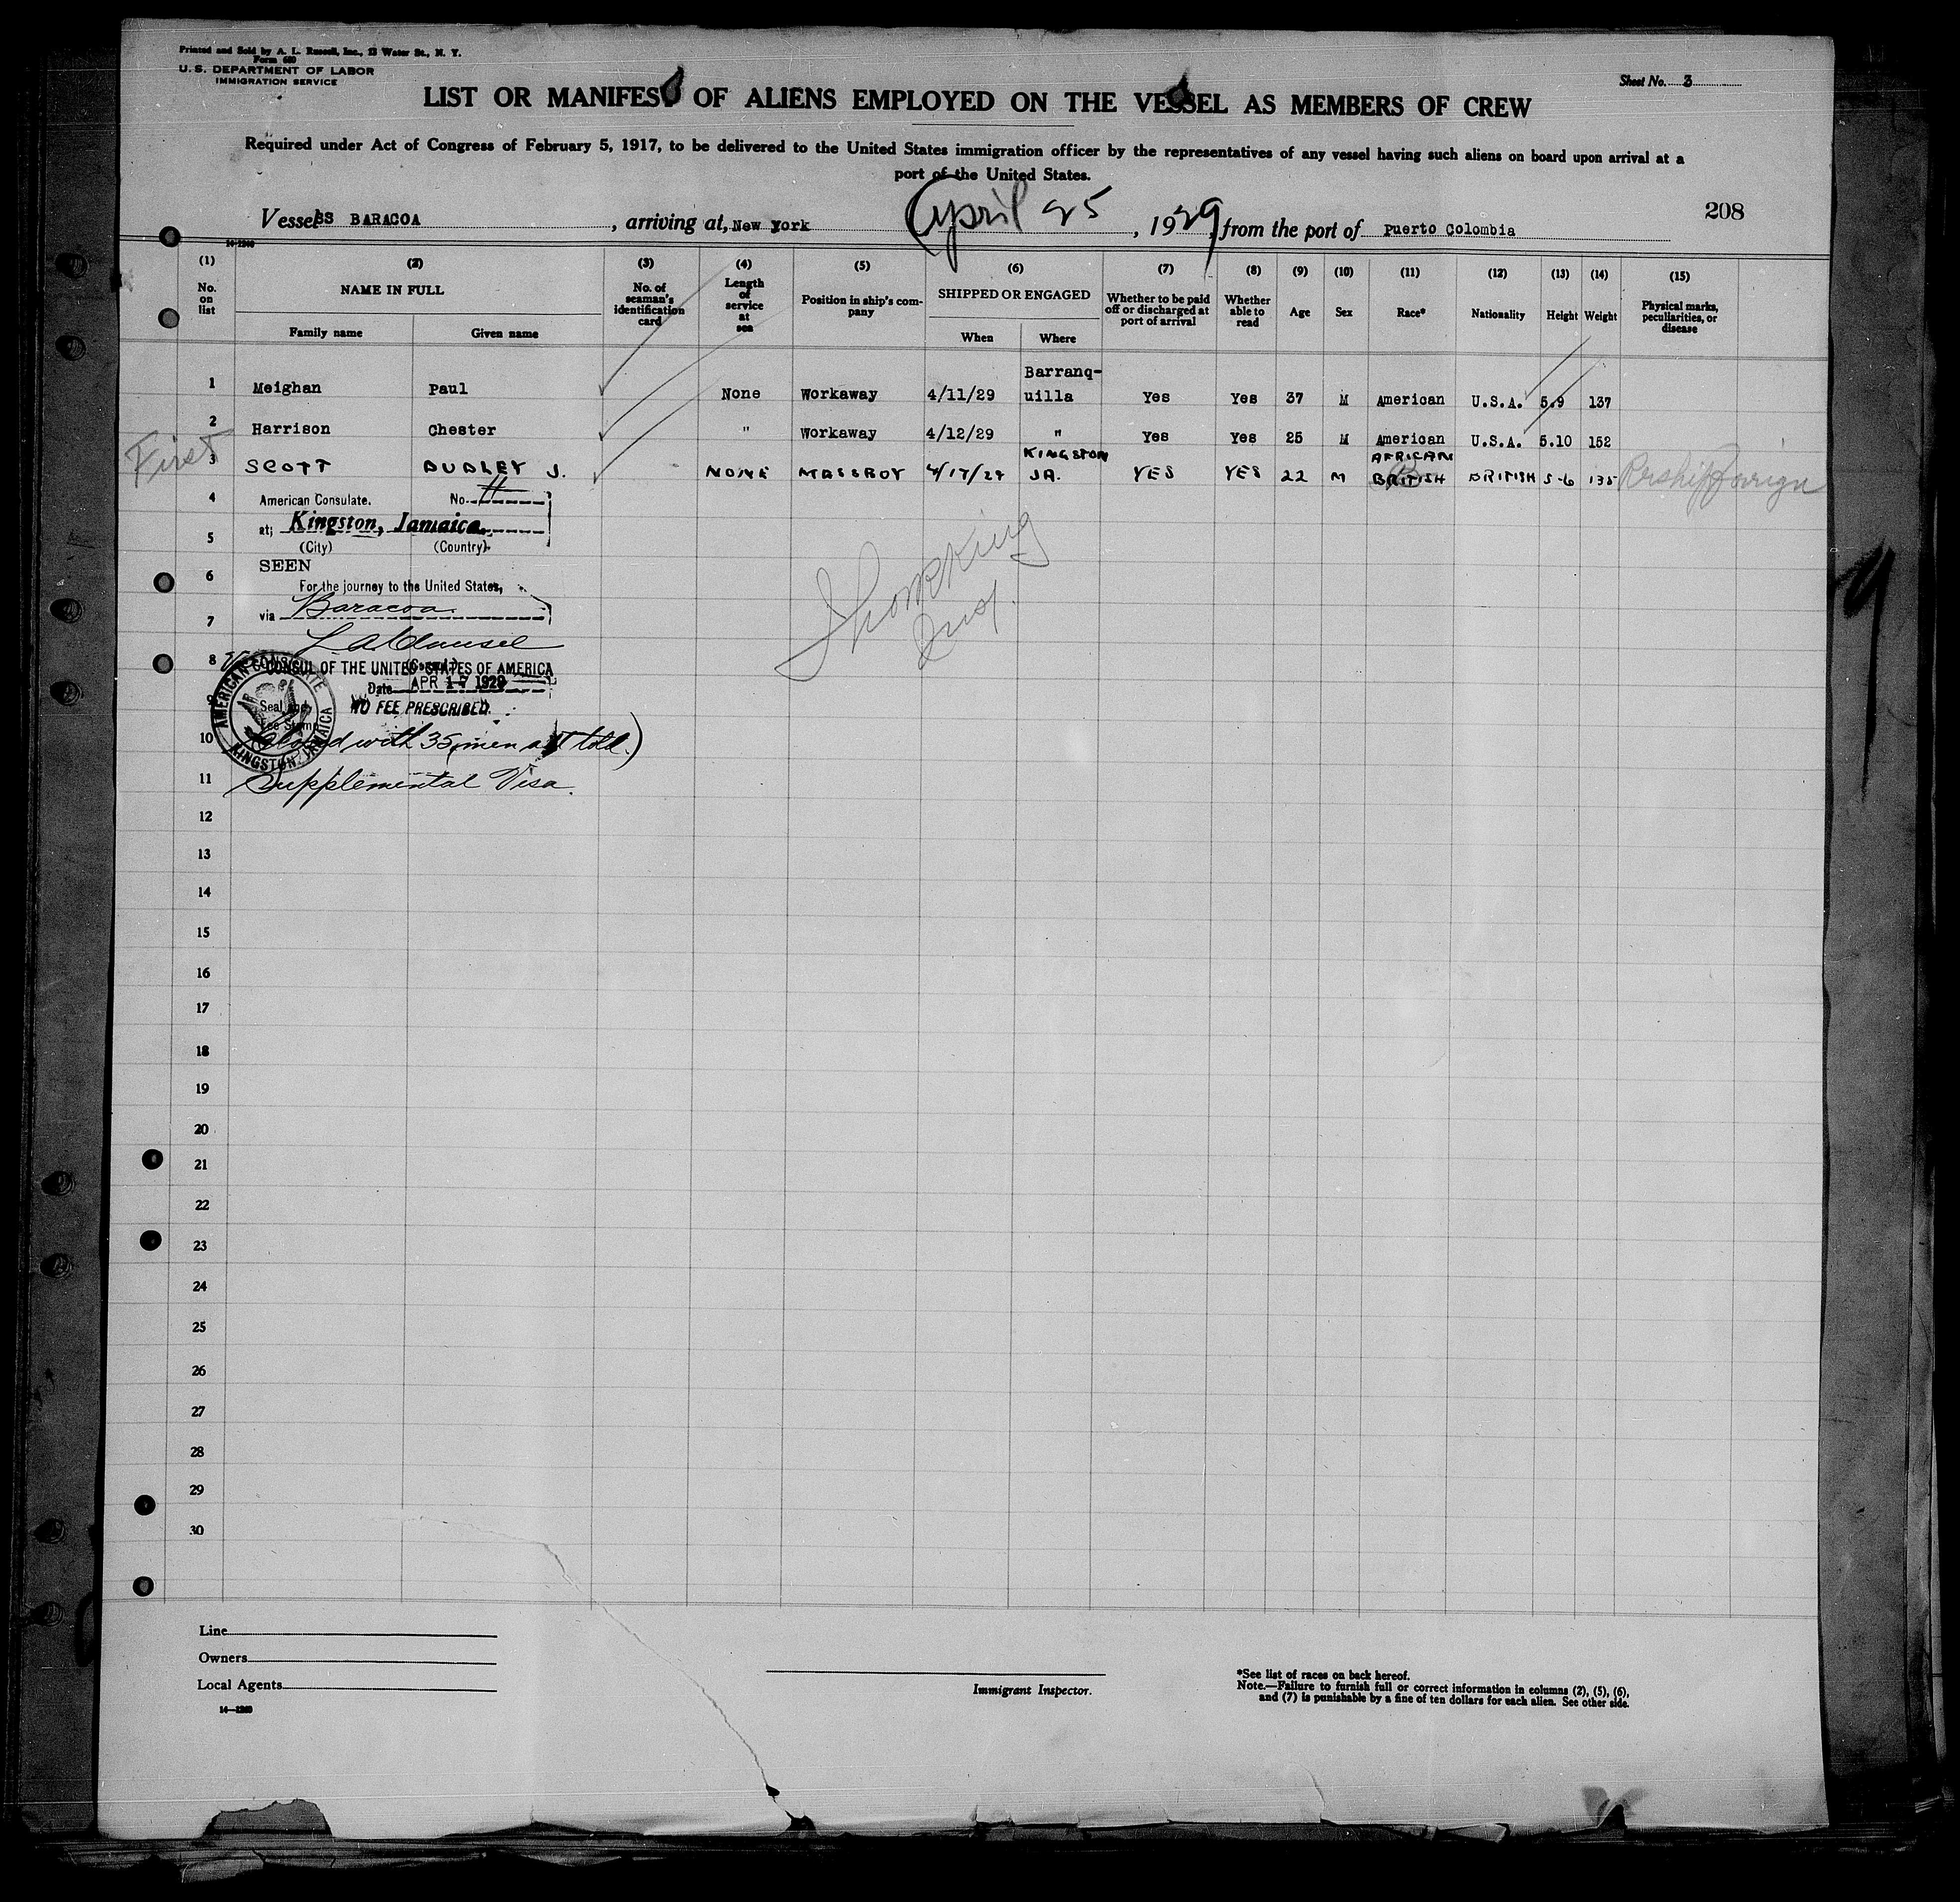 Printed and Sold by A. L. Russell, Inc., 13 Water St., N. Y.
Form 680
U. S. DEPARTMENT OF LABOR
IMMIGRATION SERVICE
Sheet No. 3
LIST OR MANIFEST OF ALIENS EMPLOYED ON THE VESSEL AS MEMBERS OF CREW
Required under Act of Congress of February 5, 1917, to be delivered to the United States immigration officer by the representatives of any vessel having such aliens on board upon arrival at a
port of the United States.
208
Vessel SS BARACOA, arriving at, New York April 25, 1929, from the port of Puerto Colombia
14-1240
(1) (2) (3) (4) (5) (6) (7) (8) (9) (10) (11) (12) (13) (14) (15)
No. on list
NAME IN FULL
Family name
Given name
No. of seaman's identification card
Length of service at sea
Position in ship's company
SHIPPED OR ENGAGED
When
Where
Whether to be paid off or discharged at port of arrival
Whether able to read
Age
Sex
Race*
Nationality
Height
Weight
Physical marks, peculiarities, or disease
1 Meighan Paul None Workaway 4/11/29 Barranq-uilla Yes Yes 37 M American U.S.A. 5.9 137
2 Harrison Chester " Workaway 4/12/29 " Yes Yes 25 M American U.S.A. 5.10 152
First
3 SCOTT DUDLEY J. NONE MESSBOY 4/17/29 KINGSTON JA. YES YES 22 M AFRICAN BRITISH BRITISH 5-6 135 Reship foreign
4 American Consulate. No. 11
5 at; Kingston, Jamaica.
(City) (Country).
6 SEEN
For the journey to the United States,
7 via Baracoa
8 CONSUL OF THE UNITED STATES OF AMERICA
(Consul)
Date APR 17 1929
9 Seal and Fee Stamp
NO FEE PRESCRIBED.
AMERICAN CONSULATE
KINGSTON, JAMAICA
10 (Closed with 35 men all told.)
11 Supplemental Visa.
12
13
14
15
16
17
18
19
20
21
22
23
24
25
26
27
28
29
30
Line
Owners
Local Agents
14-1240
Immigrant Inspector.
*See list of races on back hereof.
Note.—Failure to furnish full or correct information in columns (2), (5), (6),
and (7) is punishable by a fine of ten dollars for each alien. See other side.